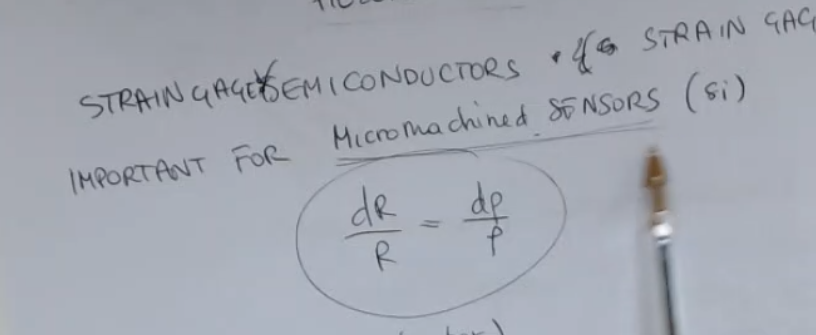 STRAIN GAGE SEMICONDUCTORS • STRAIN GAG
IMPORTANT FOR Micromachined SENSORS (Si)
dR/R = dρ/ρ